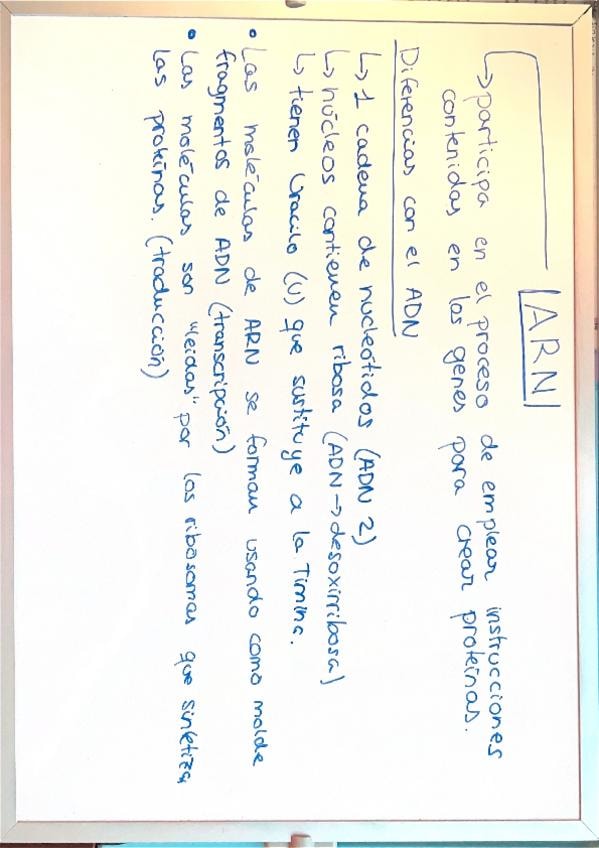 ARN
↳ participa en el proceso de emplear instrucciones
contenidas en los genes para crear proteínas.
Diferencias con el ADN
↳ 1 cadena de nucleótidos (ADN 2)
↳ núcleos contienen ribosa (ADN → desoxirribosa)
↳ tienen Uracilo (U) que sustituye a la Timina.
• Las moléculas de ARN se forman usando como molde
fragmentos de ADN (transcripción)
• Las moléculas son "leídas" por los ribosomas que sintetiza
las proteínas. (traducción)